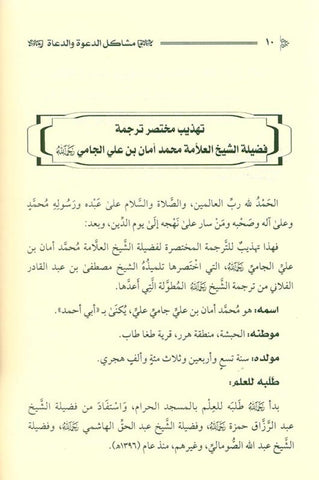 ١٠ مشاكل الدعوة والدعاة
تهذيب مختصر ترجمة
فضيلة الشيخ العلاّمة محمد أمان بن علي الجامي رَحِمَهُ اللهُ
الحَمْدُ لله ربِّ العالمين، والصَّلاة والسَّلام علىٰ عَبْده ورَسُولِهِ مُحمَّدٍ
وعلىٰ آله وصَحْبه ومَنْ سار علىٰ نَهْجه إلىٰ يوم الدِّين، وبعد:
فهذا تهذيبٌ للتَّرجمة المختصرة لفضيلة الشَّيخ العلَّامة مُحمَّد أمان بن
عليٍّ الجاميِّ رَحِمَهُ اللهُ، التي اخْتَصرها تلميذُهُ الشيخ مصطفىٰ بن عبد القادر
الفلاني من ترجمة الشَّيخ رَحِمَهُ اللهُ المُطوَّلة الَّتِي أَعدَّها.
اسمه: هو مُحمَّد أمان بن عليٍّ الجامي عليّ، يُكنَىٰ بـ «أبي أحمد».
موطنه: الحبشة، منطقة هرر، قرية طغا طاب.
مولده: سنة تسع وأربعين وثلاث مئةٍ وألفٍ هجري.
طلبه للعلم:
بدأ رَحِمَهُ اللهُ طَلَبَه للعِلْم بالمسجد الحرام، وَاسْتَفَادَ من فضيلة الشَّيخ
عبد الرَّزَّاق حمزة رَحِمَهُ اللهُ، وفضيلة الشَّيخ عبد الحقِّ الهاشمي رَحِمَهُ اللهُ، وفضيلة
الشَّيخ عبد الله الصُّومالي، وغيرهم، منذ عام (١٣٩٦هـ).